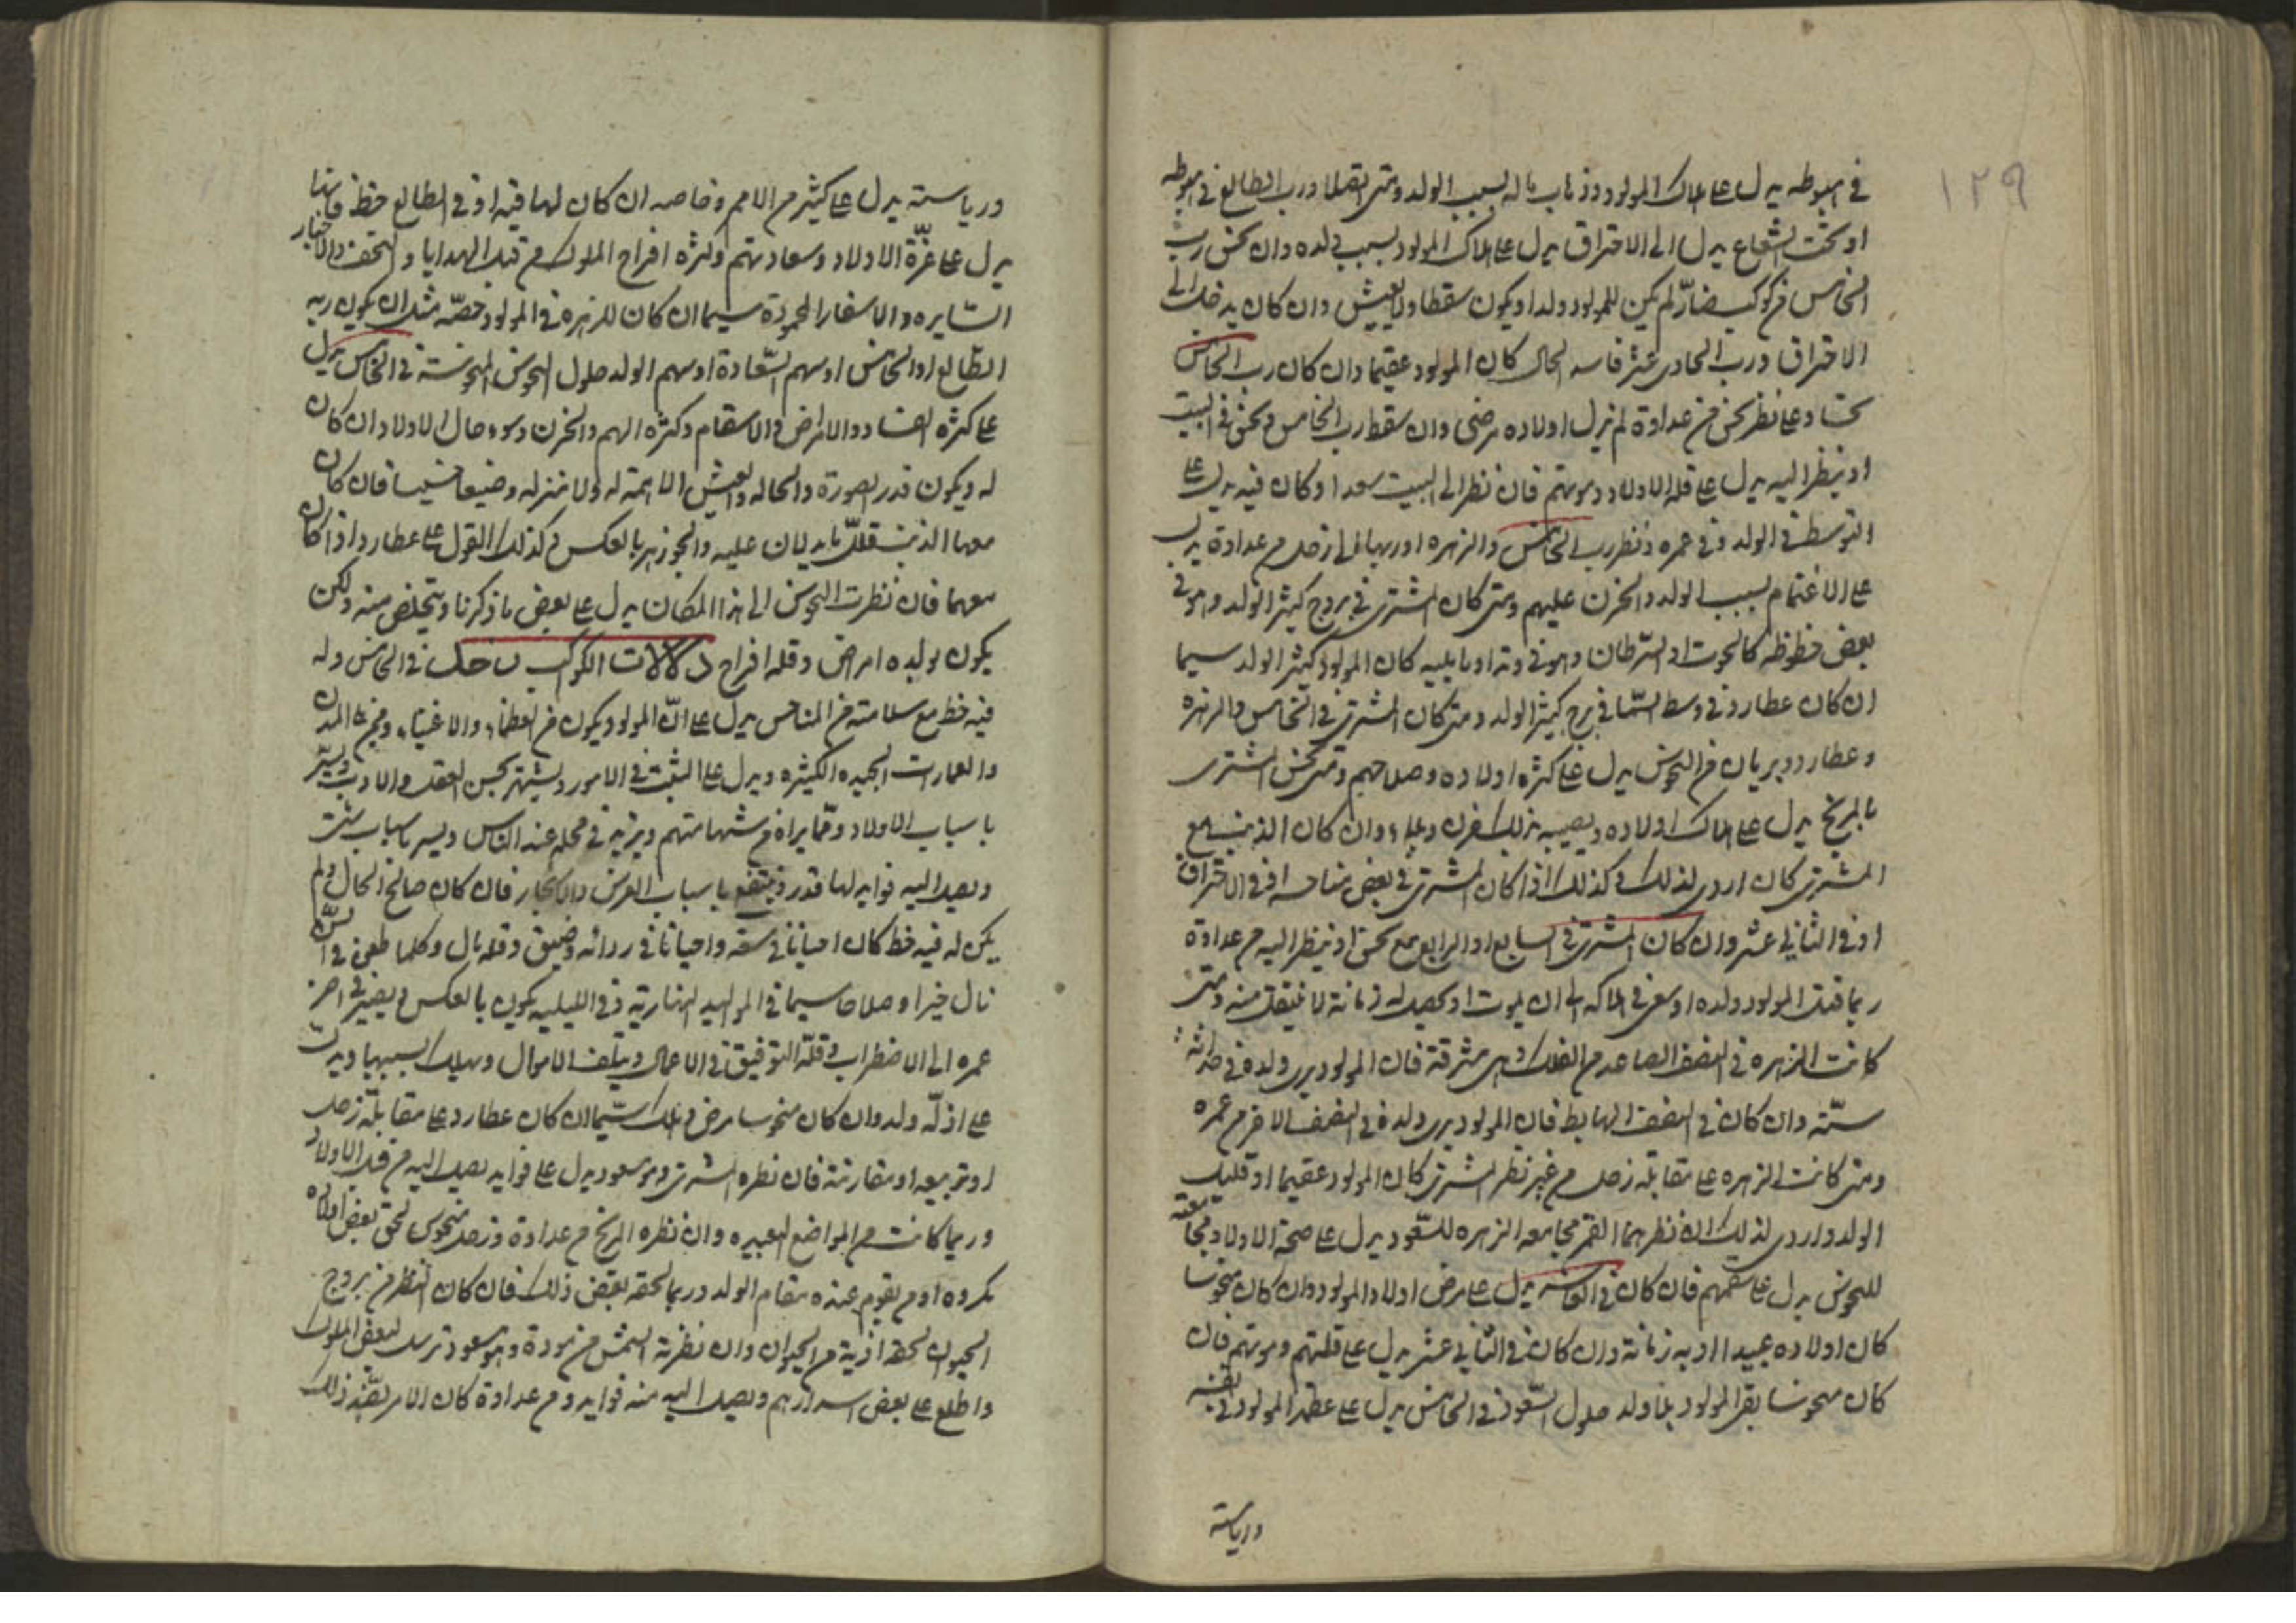 ١٢٩
في هبوطه يدل على هلاك المولود وذهاب ماله بسبب الولد ومتى اتصلا ورب الطالع في هبوطه
او تحت الشعاع يدل الى الاحتراق يدل على هلاك المولود بسبب ولده وان نحس رب
الخامس من كوكب ضار لم يكن للمولود ولد او يكون سقطا ولا يعيش وان كان يدخل الى
الاحتراق ورب الحادي عشر فاسد الحال كان المولود عقيما وان كان رب الخامس
نحسا وعلى نظر نحس من عداوة لم تزل اولاده مرضى وان سقط رب الخامس ونحس في البيت
او ينظر اليه يدل على قلة الاولاد وموتهم فان نظر الى البيت سعد او كان فيه يدل على
التوسط في الولد وفي عمره ونظر رب الخامس والزهره او ربها الى زحل من عداوة يدل
على الاغتمام بسبب الولد والحزن عليهم ومتى كان المشتري في بروج كثيرة الولد وهو في
بعض حظوظه كالحوت او السرطان وهو في وتد او ما يليه كان المولود كثير الولد سيما
ان كان عطارد في وسط السما في برج كثير الولد ومتى كان المشتري في الخامس والزهره
وعطارد وبريان من النحوس يدل على كثرة اولاده وصلاحهم ومتى نحس المشتري
بالمريخ يدل على هلاك اولاده ويصيبه بذلك وان كان الذنب مع
المشتري كان اردى لذلك وكذلك اذا كان المشتري في بعض مناحسه او في الاحتراق
او في الثاني عشر وان كان المشتري في السابع او الرابع مع نحس او ينظر اليه من عداوة
ربما قتل المولود ولده او سعى في هلاكه الى ان يموت او يحصل له زمانة لا ينتقل منه ومتى
كانت الزهره في النصف الصاعد من الفلك وهي مشرقة فان المولود يرى ولده في حداثة
سنه وان كان في النصف الهابط فان المولود يرى ولده في النصف الاخر من عمره
ومتى كانت الزهره على مقابلة زحل من غير نظر المشتري كان المولود عقيما او قليل
الولد واردى لذلك ان نظرهما القمر مجامعه الزهره للسعود يدل على صحة الاولاد ومجامعته
للنحوس يدل على سقمهم فان كان في العاشر يدل على مرض اولاد المولود وان كان منحوسا
كان اولاده عبيدا او به زمانة وان كان في الثاني عشر يدل على قلتهم وموتهم فان
كان منحوسا بقى المولود بلا ولد حلول السعود في الخامس يدل على عظم المولود في نفسه
ورياسته
ورياسته يدل على كثير من الامم وخاصه ان كان لهما فيه او في الطالع حظ فانها
يدل على عزة الاولاد وسعادتهم وكثرة افراح الملوك من قبل الهدايا والتحف والاخبار
السايره والاسفار المحمودة سيما ان كان للزهرة في المولد حصة مثل ان يكون ربه
الطالع او الخامس او سهم السعادة او سهم الولد حلول النحوس المنحوسة في الخامس يدل
على كثرة الفساد والامراض والاسقام وكثرة الهم والحزن وسوء حال الاولاد ان كان
له ويكون قدر الصورة والحاله والعيش الا همة له ولا منزله وضيعا خسيسا فان كان
معها الذنب قلل ما يدلان عليه والجوزهر بالعكس وكذلك القول على عطارد اذا كان
معهما فان نظرت النحوس الى هذا المكان يدل على بعض ما ذكرنا ويتخلص منه ولكن
يكون لولده امراض وقله افراح دلالات الكواكب زحل في الخامس وله
فيه حظ مع سلامته من المناحس يدل على ان المولود يكون من العظماء والاغنياء المدن
والعمارات الجيده الكثيره ويدل على التثبت في الامور ويشتهر بحسن العقل والادب ويسر
باسباب الاولاد وبما يراه من شهامتهم ويزيد في محله عند الناس ويسر باسباب شتى
ويصل اليه فوايد لها قدر وينتفع باسباب الغرس والاشجار فان كان صالح الحال ولم
يكن له فيه حظ كان احيانا في سعة واحيانا في رداءة وضيق وقله مال وكلما طعن في السن
نال خيرا وصلاحا سيما في المواليد النهارية وفي الليليه يكون بالعكس ويصير في اخر
عمره الى الاضطراب وقلة التوفيق في الاعمال ويتلف الاموال ويهلك بسببها ويدل
على اذلة ولد وان كان منحوسا مرض وهلك سيما ان كان عطارد على مقابلة زحل
او تربيعه او مقارنته فان نظره المشتري وهو مسعود يدل على فوايد يصل اليه من قبل الاولاد
وربما كانت من المواضع البعيره وان نظره المريخ من عداوة وزحل منحوس لحق بعض اولاده
مكروه او من يقوم عنده مقام الولد وربما لحقه بعض ذلك فان كان النظر من بروج
الحيوان لحقه اذية من الحيوان وان نظرته الشمس من مودة وهو مسعود ترسل لبعض الملوك
واطلع على بعض اسرارهم ويصل اليه منه فوايد ومن عداوة كان الامر بضد ذلك